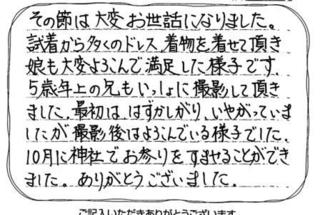 その節は大変お世話になりました。
試着から多くのドレス、着物を着せて頂き
娘も大変よろこんで満足した様子です。
5歳年上の兄もいっしょに撮影して頂き
ました。最初は、はずかしがり、いやがっていま
したが撮影後はよろこんでいる様子でした。
10月に神社でお参りをすませることができ
ました。ありがとうございました。
ご記入いただきありがとうございます